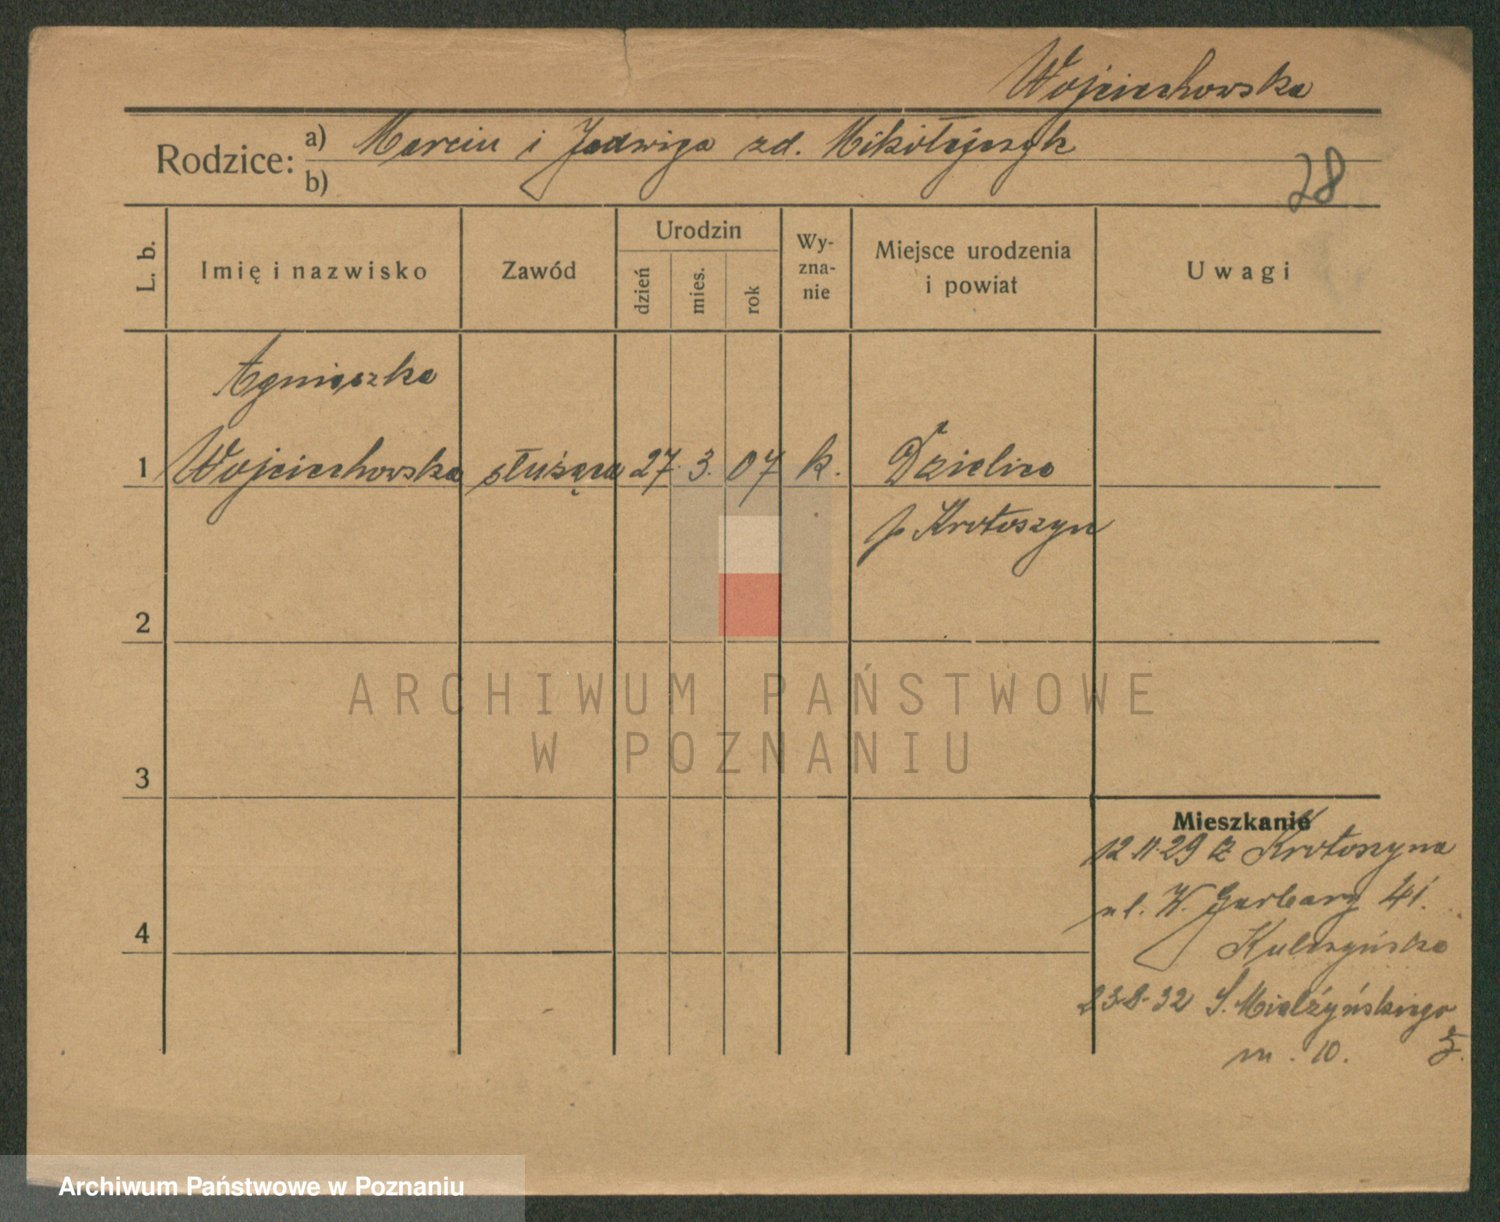 Wojciechowska
Rodzice: a) Marcin i Jadwiga zd. Mikołajczyk
b)
28
L. b.
Imię i nazwisko
Zawód
Urodzin
dzień
mies.
rok
Wy-
zna-
nie
Miejsce urodzenia
i powiat
Uwagi
Agnieszka
1 Wojciechowska służąca 27. 3. 07 k. Dzielice
p Krotoszyn
2
3
4
Mieszkanie
12.11.29 z Krotoszyna
ul. W. Garbary 41.
Kulczyńska
23-8-32 S. Mielżyńskiego
m. 10.
ARCHIWUM PAŃSTWOWE
W POZNANIU
Archiwum Państwowe w Poznaniu